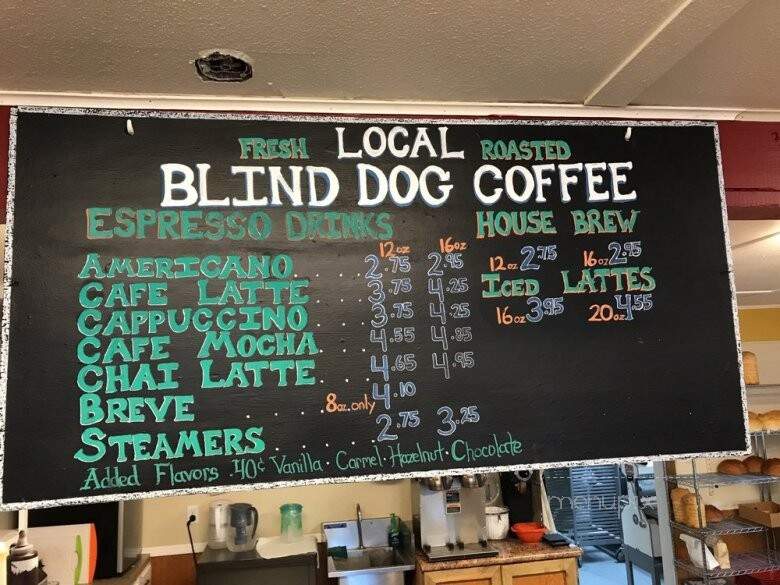 FRESH LOCAL ROASTED
BLIND DOG COFFEE
ESPRESSO DRINKS
12oz 16oz
AMERICANO..... 2.75 2.95
CAFE LATTE..... 3.75 4.25
CAPPUCCINO..... 3.75 4.25
CAFE MOCHA..... 4.55 4.85
CHAI LATTE..... 4.65 4.95
BREVE..... 8oz.only 4.10
STEAMERS..... 2.75 3.25
Added Flavors .40¢ Vanilla · Carmel · Hazelnut · Chocolate
HOUSE BREW
12oz 2.75 16oz 2.95
ICED LATTES
16oz 3.95 20oz 4.55
menu